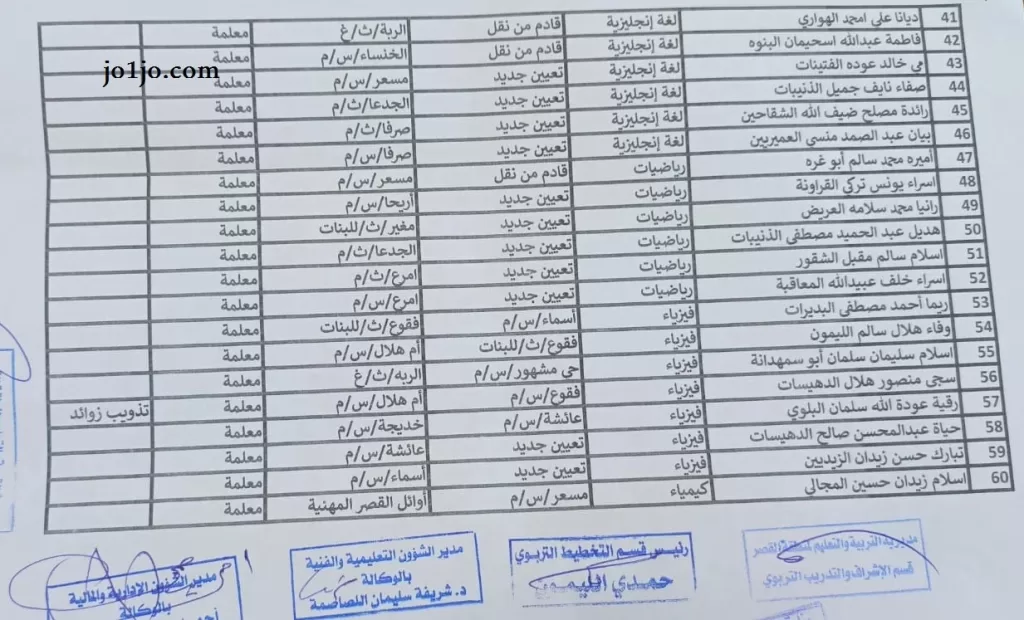 41 ديانا علي امجد الهواري لغة إنجليزية قادم من نقل الربة/ث/غ معلمة
42 فاطمة عبدالله اسحيمان البنوه لغة إنجليزية قادم من نقل الخنساء/س/م معلمة
jo1jo.com
43 مي خالد عوده الفتينات لغة إنجليزية تعيين جديد مسعر/س/م معلمة
44 صفاء نايف جميل الذنيبات لغة إنجليزية تعيين جديد الجدعا/ث/م معلمة
45 رائدة مصلح ضيف الله الشقاحين لغة إنجليزية تعيين جديد صرفا/ث/م معلمة
46 بيان عبد الصمد منسي العميريين لغة إنجليزية تعيين جديد صرفا/س/م معلمة
47 اميره محمد سالم أبو غره رياضيات قادم من نقل مسعر/س/م معلمة
48 اسراء يونس تركي القراونة رياضيات تعيين جديد أريحا/س/م معلمة
49 رانيا محمد سلامه العريض رياضيات تعيين جديد مغير/ث/للبنات معلمة
50 هديل عبد الحميد مصطفى الذنيبات رياضيات تعيين جديد الجدعا/ث/م معلمة
51 اسلام سالم مقبل الشقور رياضيات تعيين جديد امرع/ث/م معلمة
52 اسراء خلف عبيدالله المعاقبة رياضيات تعيين جديد امرع/س/م معلمة
53 ريما أحمد مصطفى البديرات فيزياء أسماء/س/م فقوع/ث/للبنات معلمة
54 وفاء هلال سالم الليمون فيزياء فقوع/ث/للبنات أم هلال/س/م معلمة
55 اسلام سليمان سلمان أبو سمهدانة فيزياء حي مشهور/س/م الربه/ث/غ معلمة
56 سجى منصور هلال الدهيسات فيزياء فقوع/س/م أم هلال/س/م معلمة تذويب زوائد
57 رقية عودة الله سلمان البلوي فيزياء عائشة/س/م خديجة/س/م معلمة
58 حياة عبدالمحسن صالح الدهيسات فيزياء تعيين جديد عائشة/س/م معلمة
59 تبارك حسن زيدان الزيديين فيزياء تعيين جديد أسماء/س/م معلمة
60 اسلام زيدان حسين المجالي كيمياء مسعر/س/م أوائل القصر المهنية معلمة
مديرية التربية والتعليم لمنطقة القصر
قسم الإشراف والتدريب التربوي
رئيس قسم التخطيط التربوي
حمدي الليمون
مدير الشؤون التعليمية والفنية
بالوكالة
د. شريفة سليمان اللصاصمة
مدير الشؤون الإدارية والمالية
بالوكالة